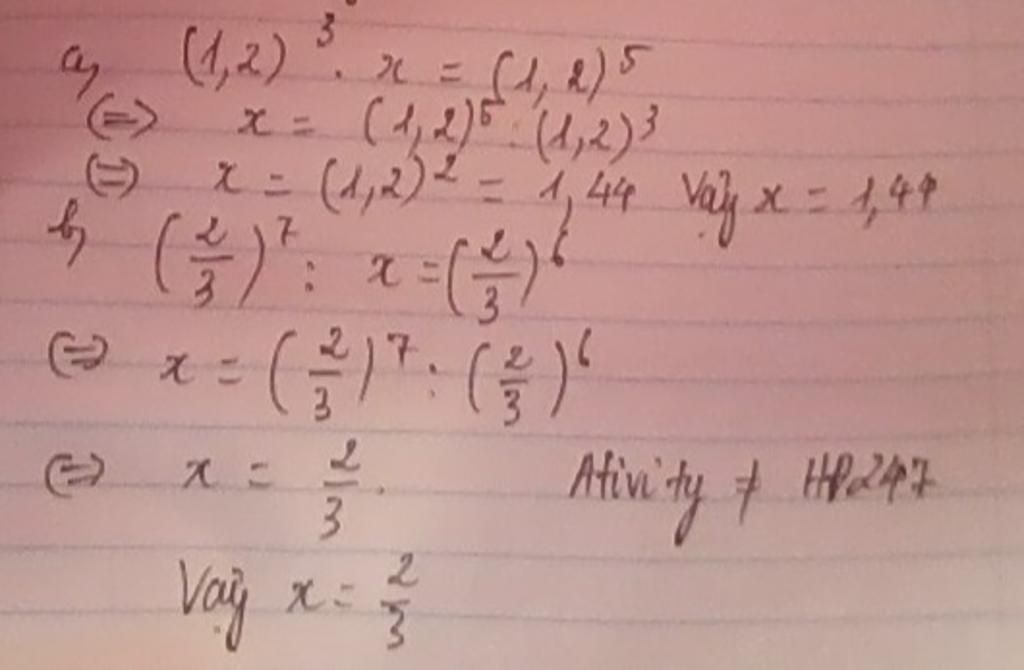 a, (1,2)³ . x = (1,2)⁵
(=> x = (1,2)⁵ : (1,2)³
(=) x = (1,2)² = 1,44 Vậy x = 1,44
b, (2/3)⁷ : x = (2/3)⁶
(=) x = (2/3)⁷ : (2/3)⁶
(=) x = 2/3.
Ativity ≠ HP247
Vậy x = 2/3